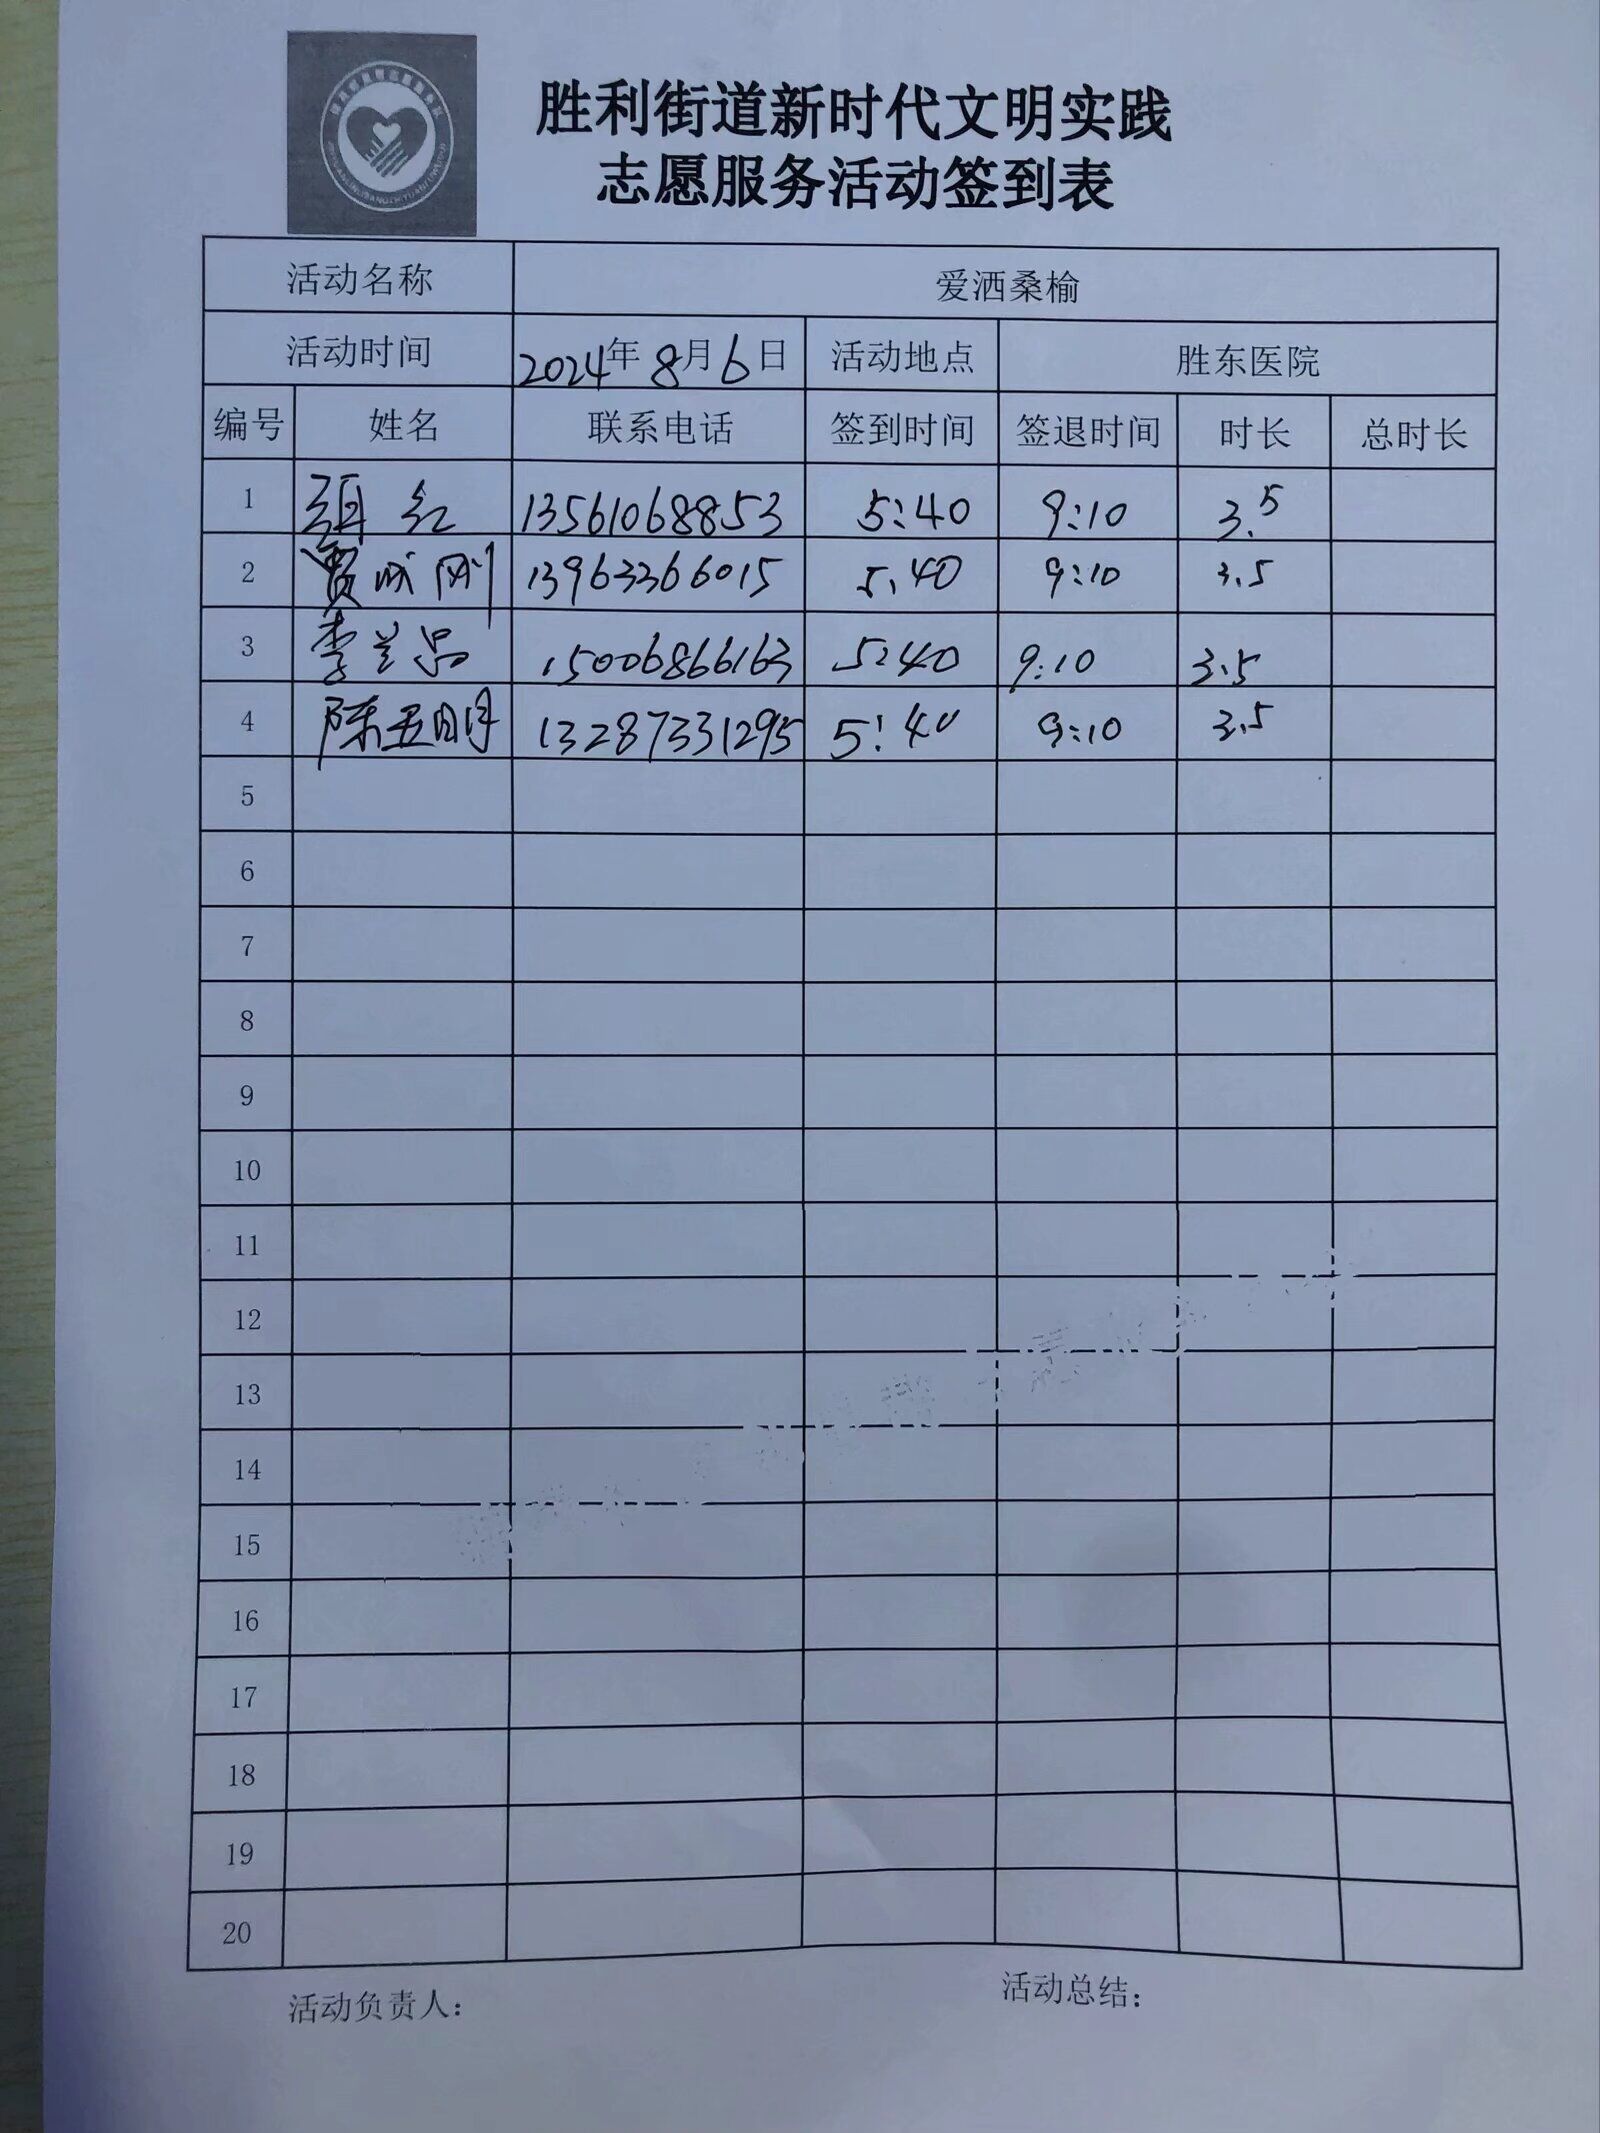 胜利街道新时代文明实践
志愿服务活动签到表
活动名称 爱洒桑榆
活动时间 2024年8月6日 活动地点 胜东医院
编号 姓名 联系电话 签到时间 签退时间 时长 总时长
1 红 13561068853 5:40 9:10 3.5
2 贾成刚 13963366015 5:40 9:10 3.5
3 李兰品 15006866163 5:40 9:10 3.5
4 陈玉明 13287331295 5:40 9:10 3.5
5
6
7
8
9
10
11
12
13
14
15
16
17
18
19
20
活动负责人：
活动总结：